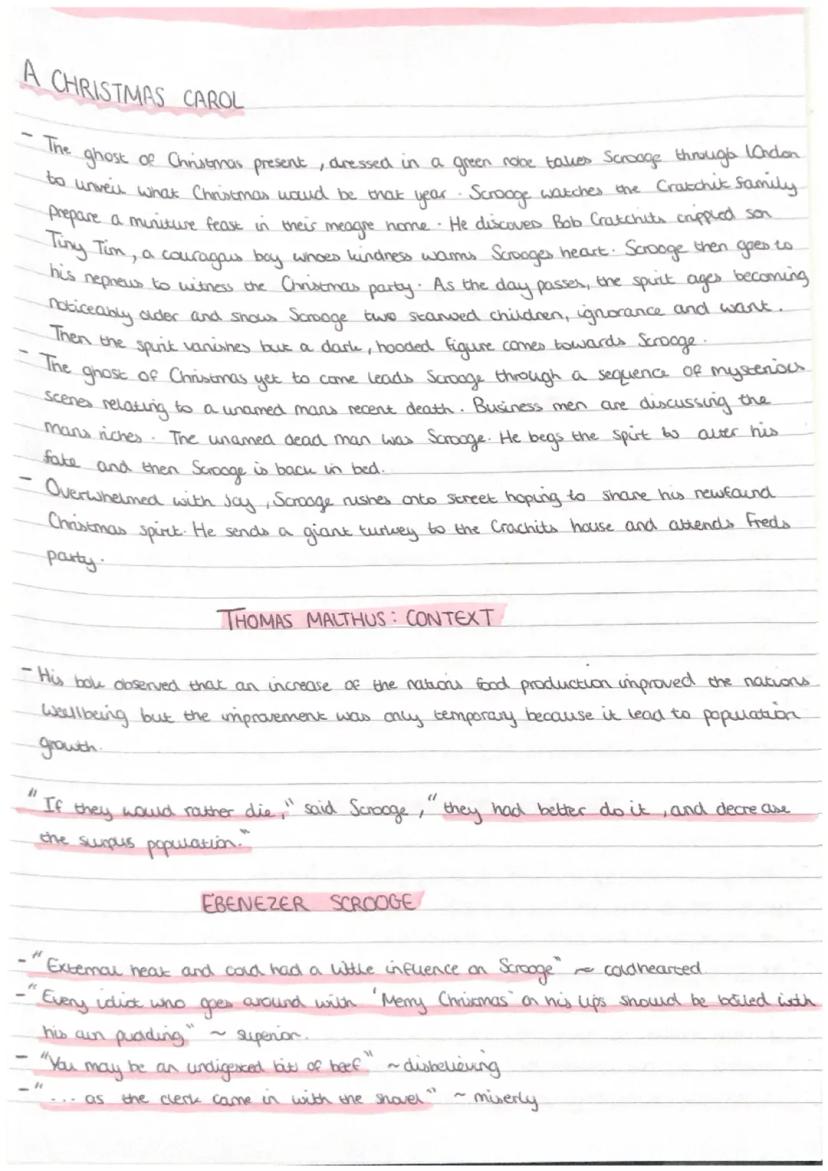 A CHRISTMAS CAROL
- The ghost of Christmas present, dressed in a green robe takes Scrooge through London
to unveil what Christmas would be that year. Scrooge watches the Cratchit family
prepare a miniture feast in their meagre home. He discoves Bob Cratchits crippled son
Tiny Tim, a couragous boy whoes kindness warms Scrooges heart. Scrooge then goes to
his nephews to witness the Christmas party. As the day passes, the spirit ages becoming
noticeably older and shows Scrooge two starved children, ignorance and want.
Then the spirit vanishes but a dark, hooded figure comes towards Scrooge.
- The ghost of Christmas yet to come leads Scrooge through a sequence of mysterious
scenes relating to a unamed mans recent death. Business men are discussing the
mans riches. The unamed dead man was Scrooge. He begs the spirt to alter his
fate and then Scrooge is back in bed.
- Overwhelmed with Joy, Scrooge rushes onto street hoping to share his newfound
Christmas spirit. He sends a giant turkey to the Crachits house and attends Freds
party.
THOMAS MALTHUS: CONTEXT
- His book observed that an increase of the nations food production improved the nations
wellbeing but the improvement was only temporary because it lead to population
growth.
"If they would rather die," said Scrooge, "they had better do it, and decrease
the surpus population."
EBENEZER SCROOGE
- "External heat and cold had a little influence on Scrooge" ~ coldhearted
- "Every idiot who goes around with 'Merry Christmas' on his lips should be boiled with
his own pudding" ~ superior.
- "You may be an undigested bit of beef" ~ disbelieving
- "... as the clerk came in with the shovel" ~ miserly